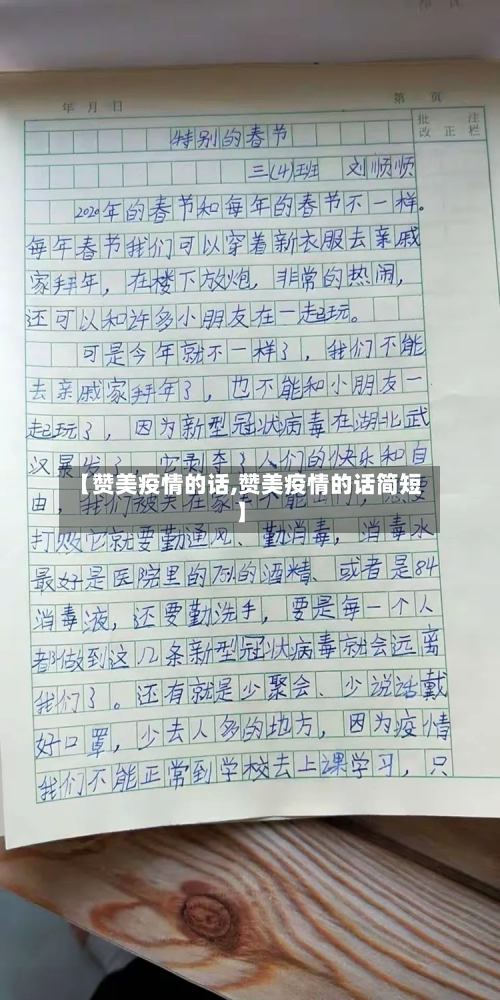 年 月 日
第 页
批 注
改 正 栏
特别的春节
三(4)班 刘顺顺
2020年的春节和每年的春节不一样。
每年春节我们可以穿着新衣服去亲戚
家拜年，在楼下放炮，非常的热闹，
还可以和许多小朋友在一起玩。
可是今年就不一样了，我们不能
去亲戚家拜年了，也不能和小朋友一
起玩了，因为新型冠状病毒在湖北武
汉暴发了，它剥夺了人们的快乐和自
由，我们被关在家里不能出门，
【赞美疫情的话,赞美疫情的话简短
】
打败它就要勤通风、勤消毒，消毒水
最好是医院里的75%的酒精、或者是84
消毒液，还要勤洗手，要是每一个人
都做到这几条新型冠状病毒就会远离
我们了。还有就是少聚会、少说话戴
好口罩，少去人多的地方，因为疫情
我们不能正常到学校去上课学习，只